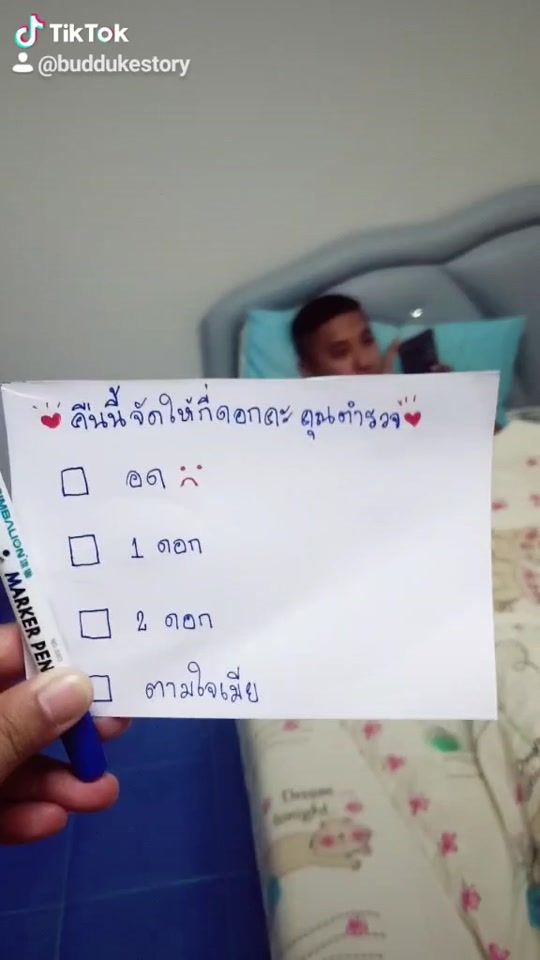 TikTok
@buddukestory
คืนนี้จัดให้กี่ดอกคะ คุณตำรวจ
อด
1 ดอก
2 ดอก
ตามใจเมีย
SIMBALION
MARKER PEN
Dream
tonight